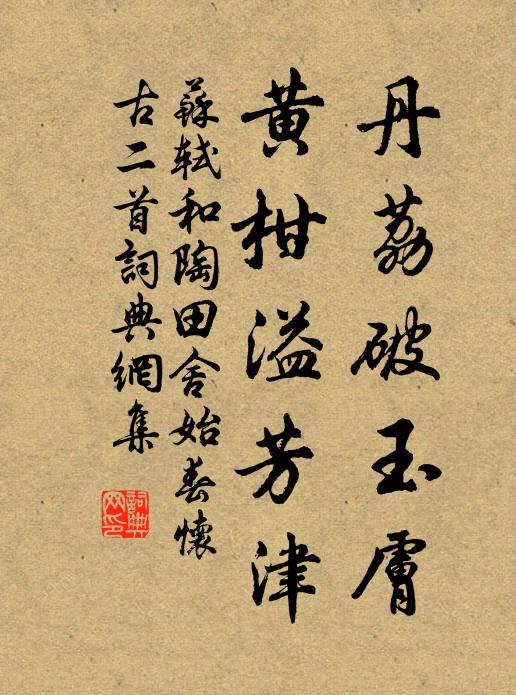 丹荔破玉膚
黃柑溢芳津
蘇軾和陶田舍始春懷
古二首詞典網集
詞典網印